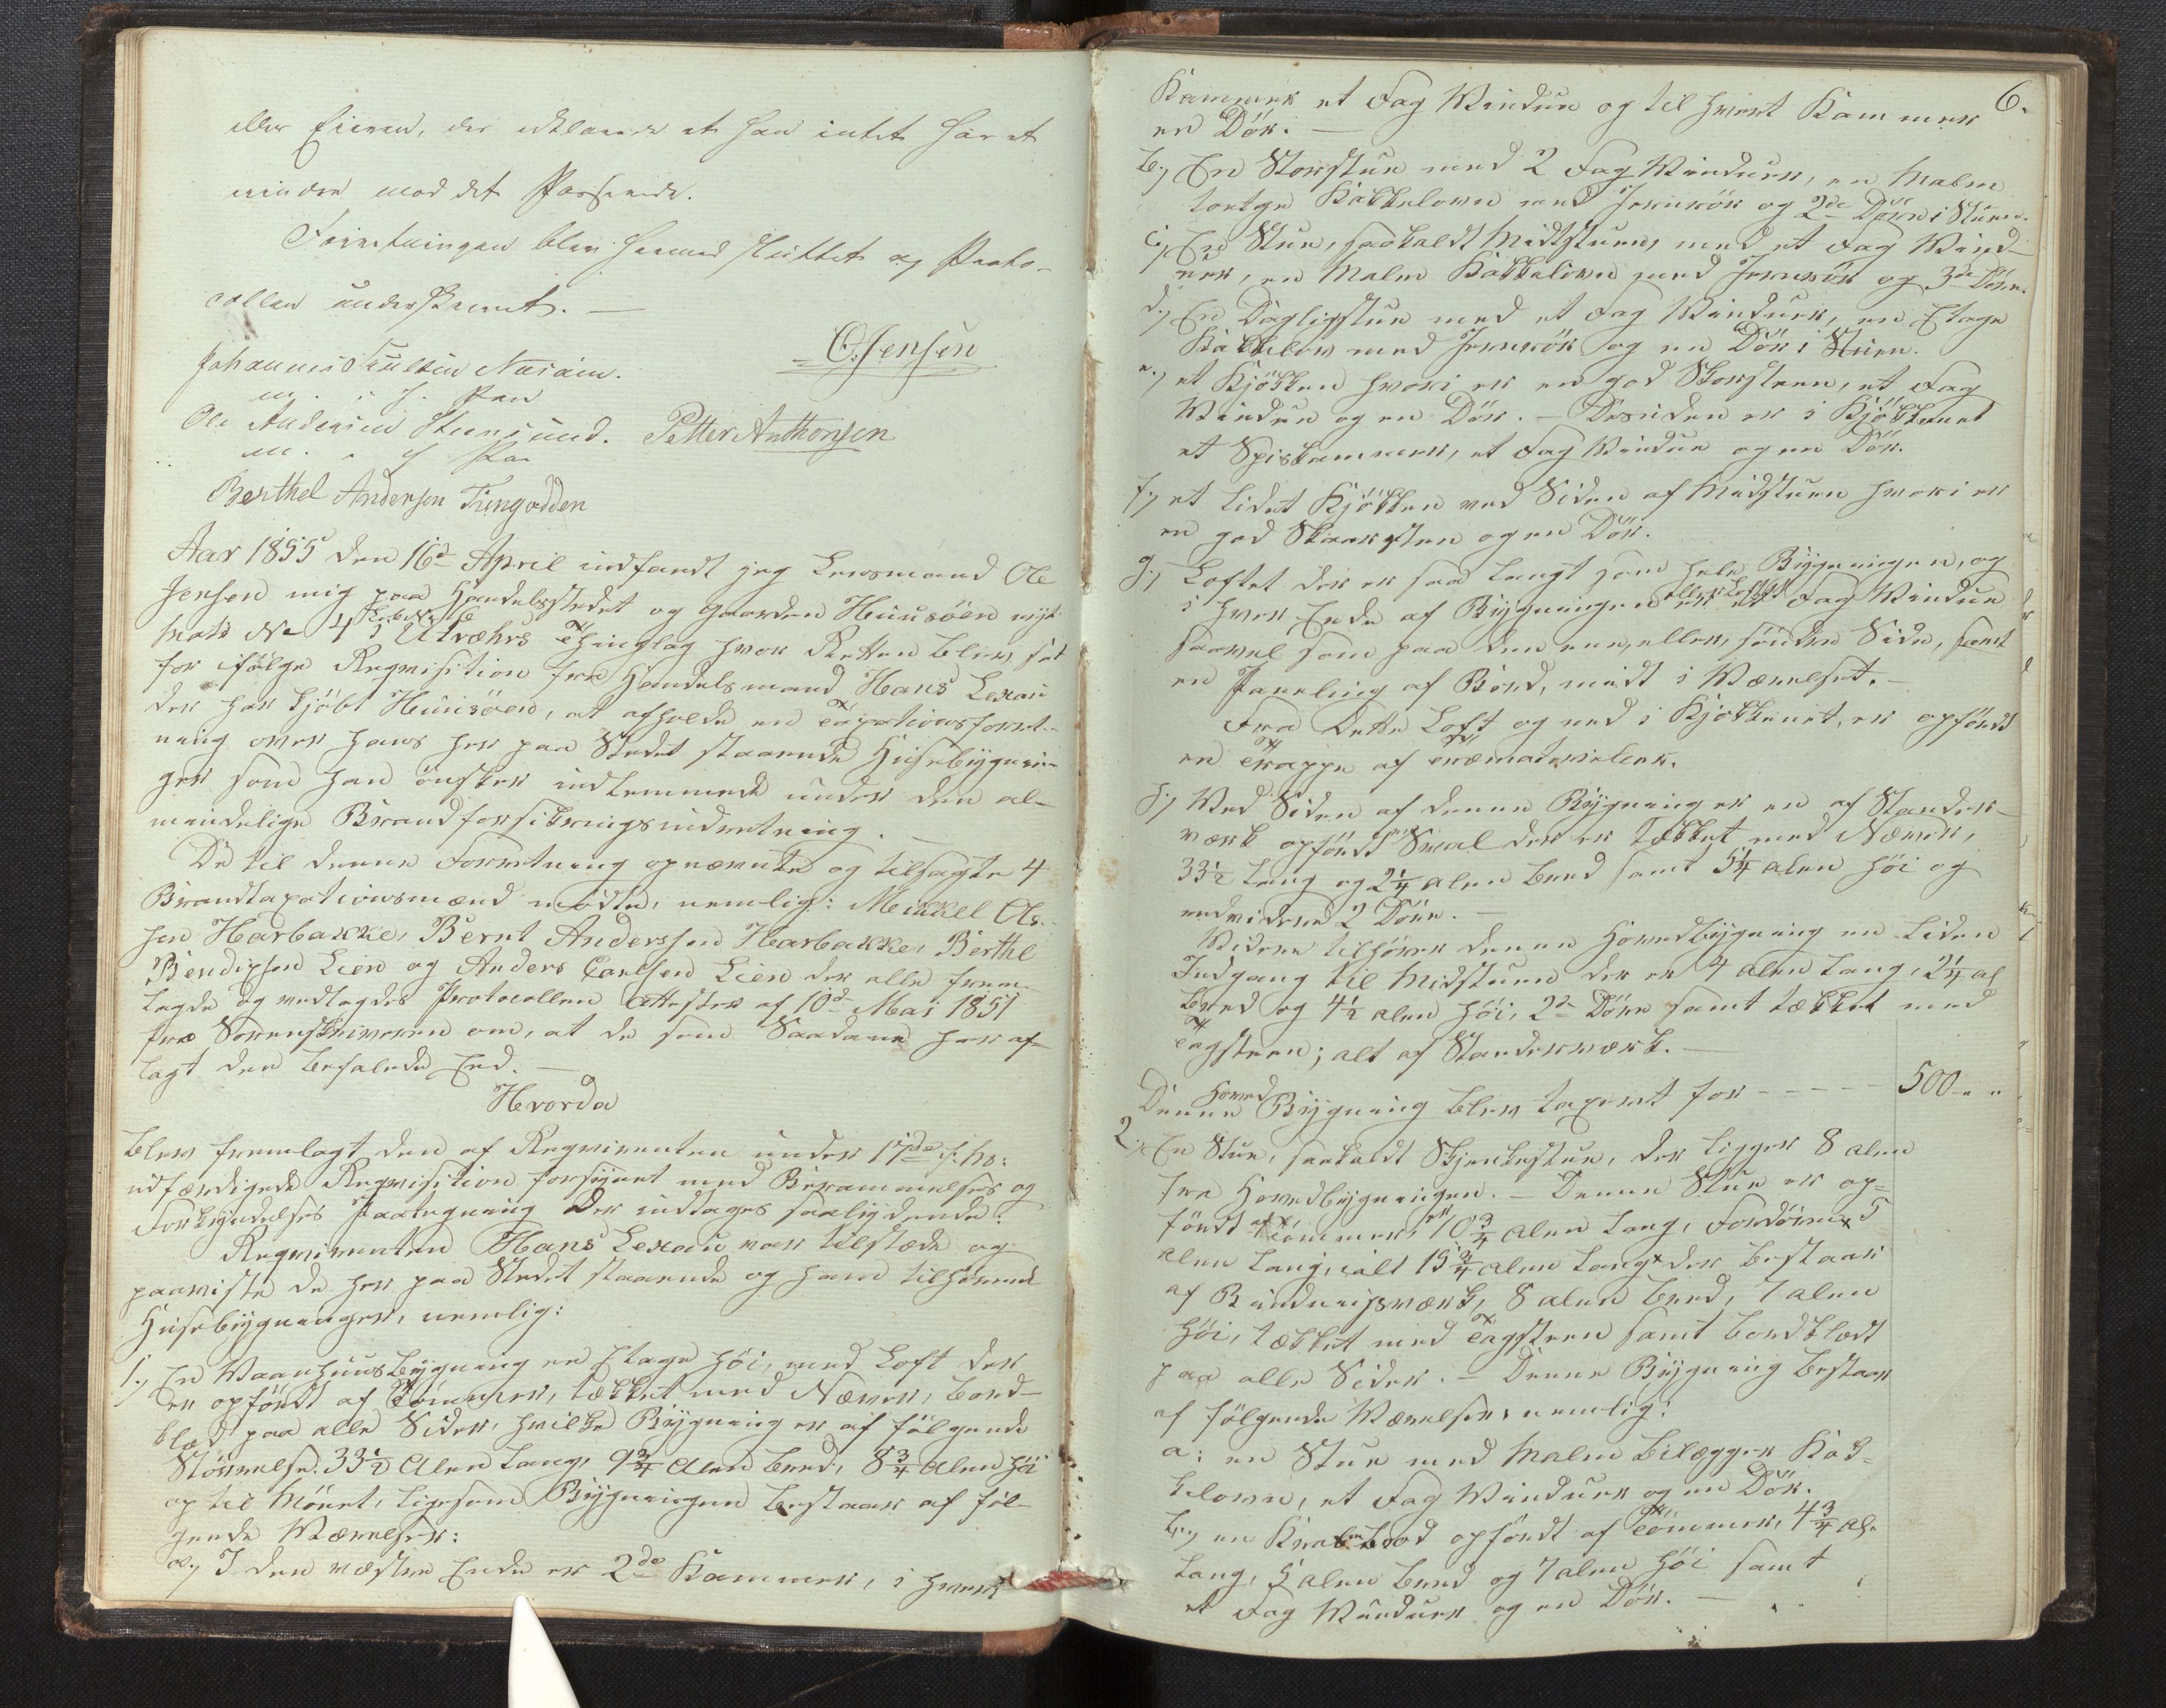 eller Eieren, der erklærede at han intet har at
erindre mod det Passerede.
Forretningen blev hermed sluttet og Proto-
collen underskrevet. —
O. Jensen
Johannes Paulsen
m. f. Pen
Ole Andersen Steensund. Petter Anthonsen
m. f. Pen
Berthel Andersen Tungodden
Aar 1855 den 16d April indfandt jeg Lensmand Ole
Jensen mig paa Handelsstedet og Gaarden Huusöen nyt
Mat: No 4 Löbe No 6 i Utværs Thinglag hvor Retten blev sat
for ifølge Reqvisition fra Handelsmand Hans Lexau
der har kjöbt Huusöen, at afholde en Taxationsforret-
ning over hans her paa Stedet staaende Huusebygnin-
ger som han önsker indlemmede under den al-
mindelige Brandforsikringsindretning. —
De til denne Forretning opnævnte og tilsagte 4
Brandtaxationsmænd mödte, nemlig: Mickkel Ol-
sen Harbakke, Bernt Anderssen Harbakke, Berthel
Bendixsen Lien og Anders Carlsen Lien der alle frem-
lagde og vedlagdes Protocollen Attester af 10d Mai 1851
fra Sorenskriveren om, at de som Saadane har af-
lagt den befalede Eed. —
Hvorda
blev fremlagt den af Reqvirenten under 17de f: M:
udfærdigede Reqvisition forsynet med Berammelses og
Forkyndelses Paategning der indtages saalydende:
Reqvirenten Hans Lexau var tilstæde og
paaviste de her paa Stedet staaende og ham tilhörende
Huusebygninger, nemlig:
1., En Vaanhuusbygning en Etage höi, med Loft der
er opfördt af Tömmer, tækket med Næver, bord-
klæd paa alle Sider, hvilke Bygning er af fölgende
Störrelse. 33½ Alen lang, 9¾ Alen bred, 8¾ Alen höi
op til Mönet, ligesom Bygningen bestaar af föl-
gende Værelser:
a., I den vestre Ende er 2de Kammer, i hvert
6.
Kammer et Fag Vindue og til hvert Kammer
en Dör. —
b., En Storstue med 2 Fag Vinduer, en Malm
Kakkelovn med Jernrör og 2de Döre i Stuen.
c., En Stue, saakaldt Midtstuen, med et Fag Vind-
uer, en Malm Kakkelovn med Jernrör og 3de Döre.
d., En Dagligstue med et Fag Vinduer, en Etage
Kakkelov med Jernrör og en Dör i Stuen.
e., et Kjökken hvori er en god Skorsteen, et Fag
Vindue og en Dör. — Desuden er i Kjökkenet
et Spiskammer, et Fag Vindue og en Dör.
f., et lidet Kjökken ved Siden af Midstuen hvori er
en god Skorsten og en Dör.
g., Loftet der er saa langt som hele Bygningen, og
i hver Ende af Bygningen eller Loftet er et Fag Vindue
saavel som paa den ene, eller, söndre Side, samt
en Paneling af Bord, midt i Værelset. —
Fra dette Loft og ned i Kjökkenet, er opfördt
en Trappe af Træmaterialier.
h., Ved Siden af denne Bygning er en af Stander-
værk opfördt Sval der er tækket med Næver,
33½ lang og 2¼ alen bred samt 5¼ alen höi og
endvidere 2 Döre. —
Videre tilhörer denne Hovedbygning en liden
Indgang til Midstuen der er 4 alen lang, 2¼ al
bred og 4½ alen höi, 2de Döre samt tækket med
Tagsteen; alt af Standerværk. —
Denne Hoved Bygning blev taxeret for - - - - - 500 „ „
2., En Stue, saakaldt Skjenkestue, der ligger 8 alen
fra Hovedbygningen. — Denne Stue er op-
fördt af Tömmer, er 10¾ alen lang, Fordören 5
alen lang, ialt 15¾ alen lang der bestaar
af Bindingsværk, 8 alen bred, 7 alen
höi, tækket med Tagsteen samt bordklædt
paa alle Sider. — Denne Bygning bestaar
af fölgende Værelser, nemlig:
a: en Stue med Malm bilægger Kak-
kelovn, et Fag Vinduer og en Dör.
b., en Krambod opfördt af Tömmer, 4¾ al.
lang, 5 alen bred og 7 alen höi samt
et Fag Vinduer og en Dör. —